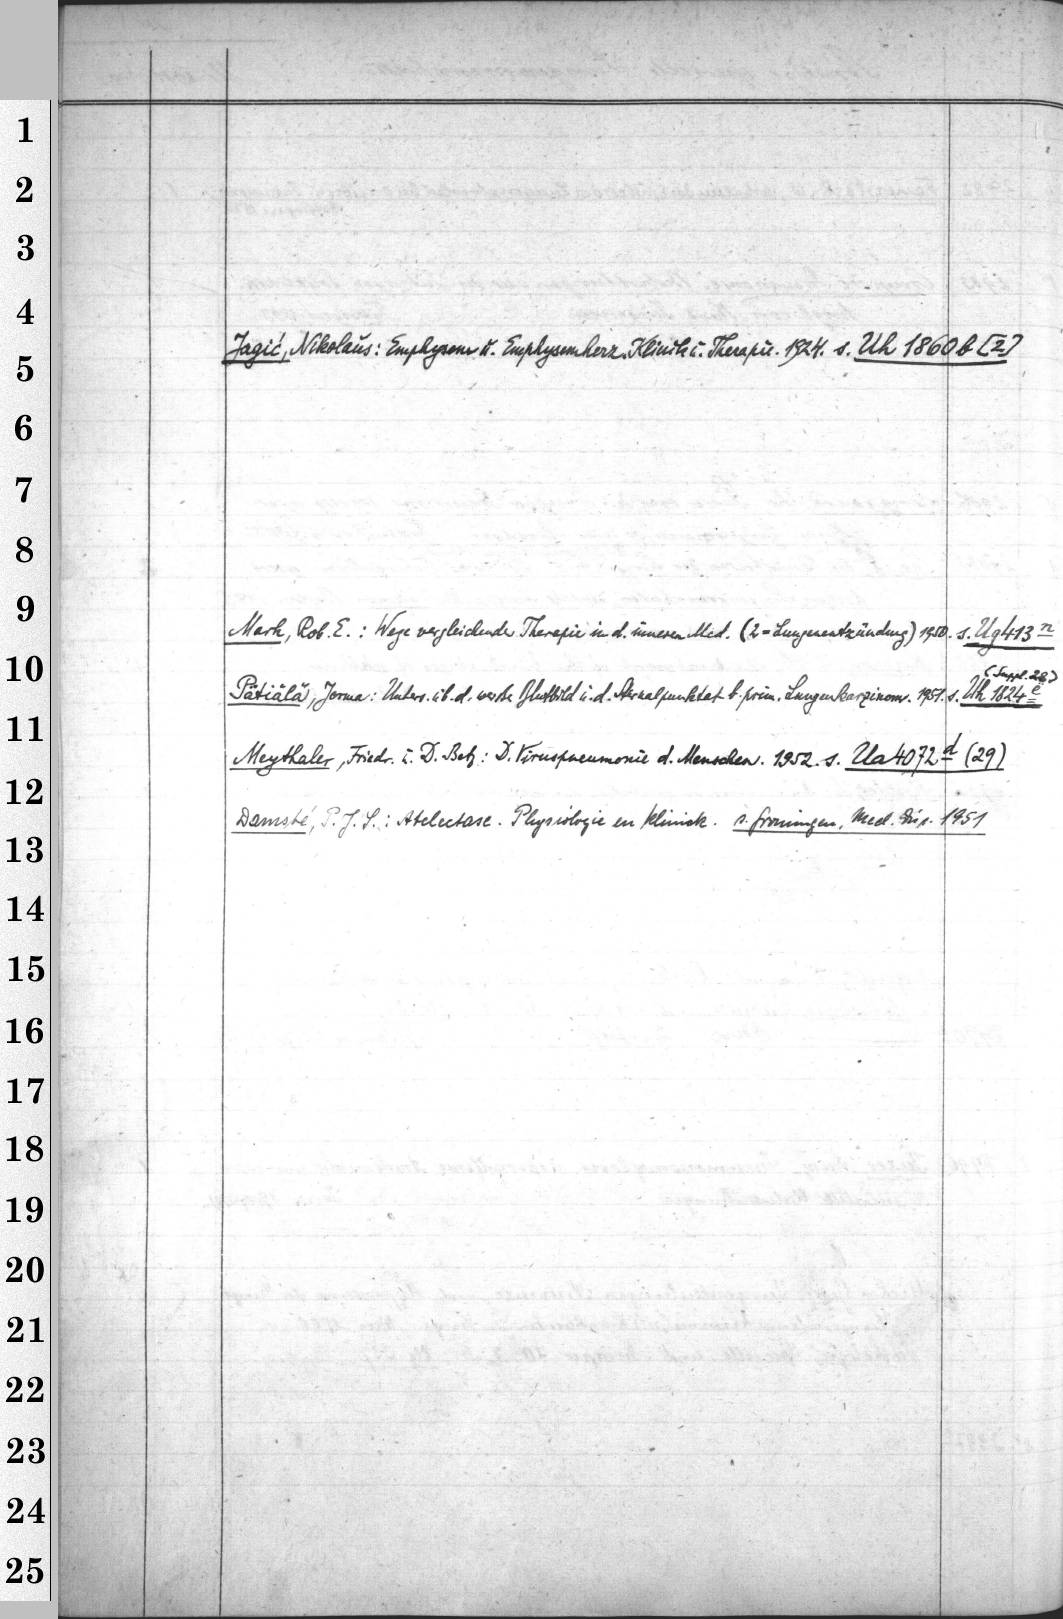 1
2
3
4
5
6
7
8
9
10
11
12
13
14
15
16
17
18
19
20
21
22
23
24
25
Jagić, Nikolaus: Emphysem u. Emphysemherz. Klinik u. Therapie. 1924. s. Uh 1860 b [2]
Mark, Rob. E.: Wege vergleichender Therapie in d. inneren Med. (2 = Lungenentzündung) 1950. s. Ug 413 n
(Suppl. 28)
Pätiälä, Jorma: Unters. üb. d. weisse Blutbild u. d. Sternalpunktat b. prim. Lungenkarzinom. 1951. s. Uh 1824 e
Meythaler, Friedr. u. D. Betz: D. Viruspneumonie d. Menschen. 1952. s. Ua 4072 d (29)
Damsté, P. J. S.: Atelectase. Physiologie en kliniek. s. Groningen, Med. Diss. 1951